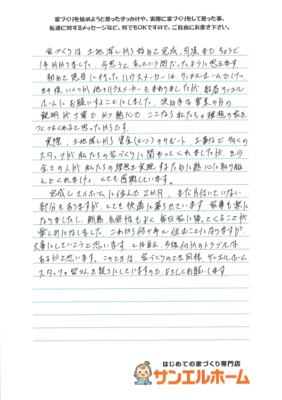 家づくりを始めようと思ったきっかけや、実際に家づくりをして思った事、
私達に対するメッセージなど、何でもOKですので、ご自由にお書き下さい。
家づくりは土地探しから始めて完成、引渡まで ちょうど
1年かかりました。今思うと あっという間だったように思います。
初めて見に行ったハウスメーカーは、サンエルホームでした。
その後いくつか他のハウスメーカーもまわりましたが、結局サンエル
ホームにお願いすることにしました。決め手は営業の方の
説明が丁寧でかつ熱心で、ここなら私たちの理想の家を
つくってくれると思ったからです。
実際、土地探しから資金 のサポート、工事など多くの
スタッフが私たちの家づくりに関わってくれましたが、その
全ての人が私たちの理想を実現するために熱心に取り組
んでくれました。とても感謝しています。
完成したマイホームに住んで2か月、まだ片付いていない
部分もありますが、とても快適に暮らせています。家事も楽に
なりましたし、断熱、気密性もよく、毎日家に帰ってくることが
楽しみになりました。これから何十年と住むことになりますが
大事にしていこうと思います。とは言え、今後何かのトラブルは
あるかと思います。このときは、家づくりのとき同様、サンエルホーム
スタッフの皆さんを頼りにしていますので、よろしくお願いします。
はじめての家づくり専門店
サンエルホーム